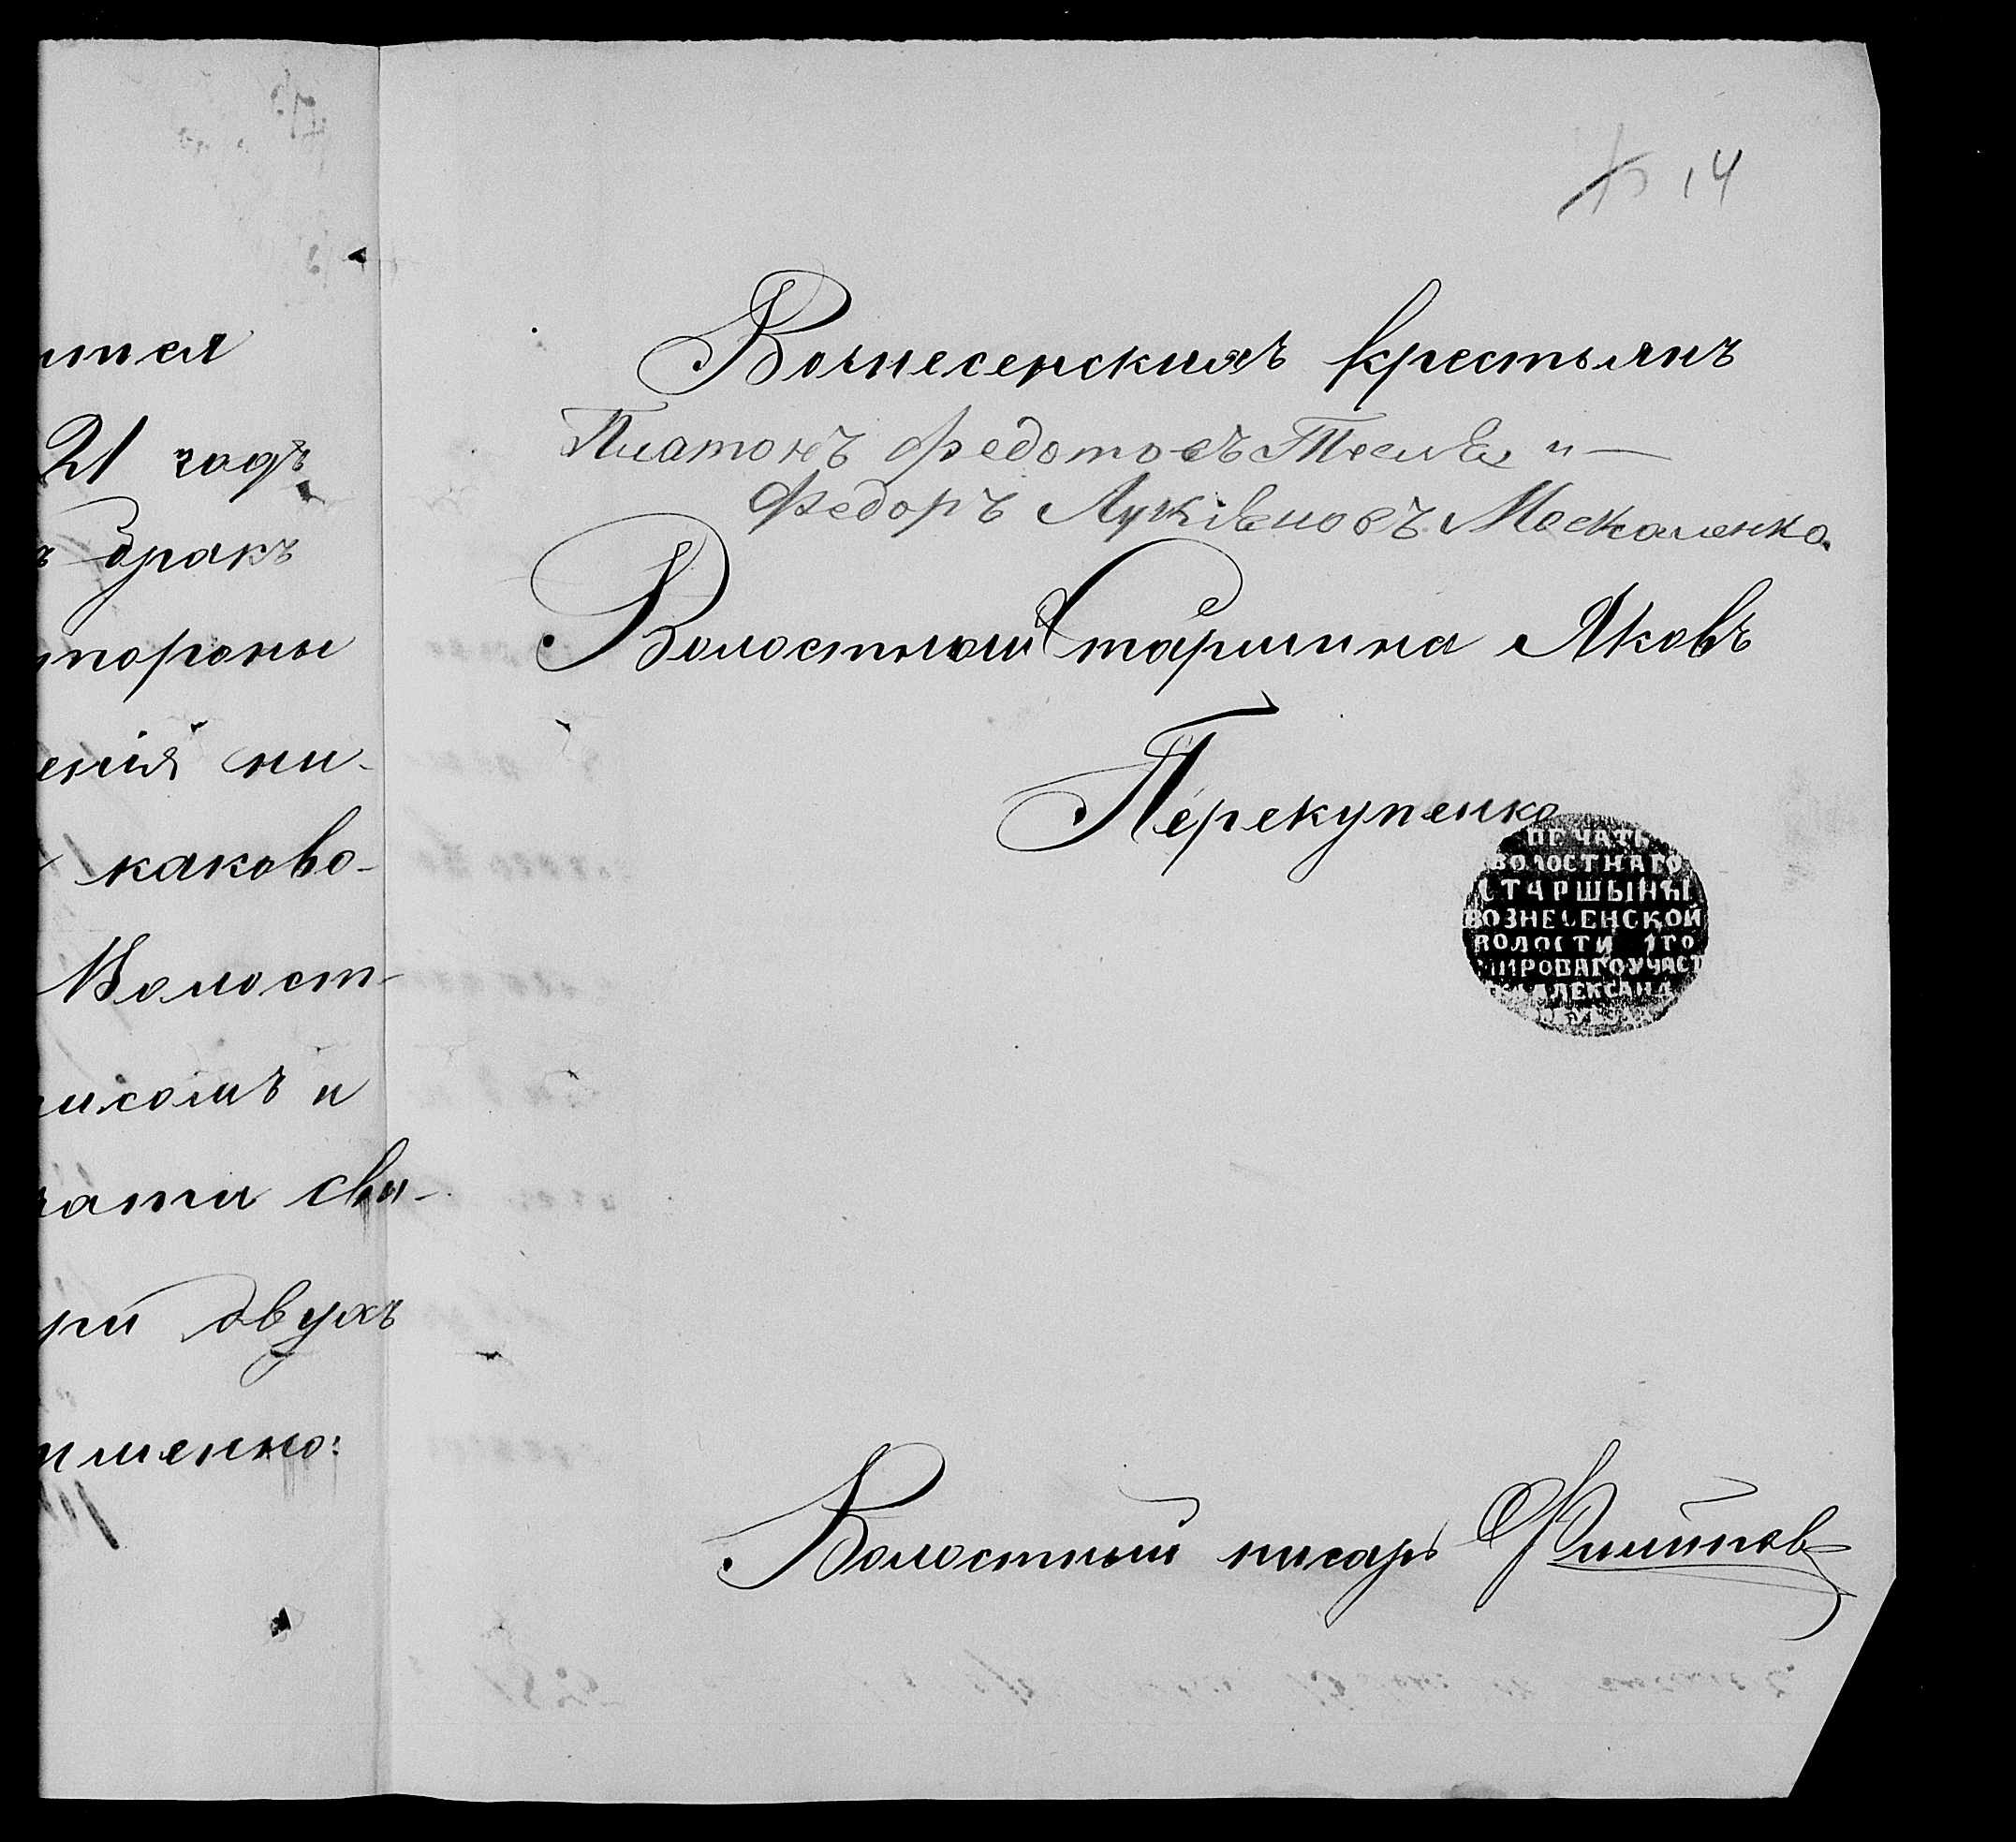 14
21 годъ
бракъ
ни-
каково-
Волост-
и
сви-
двухъ
Вознесенскихъ крестьянъ
Платонъ Федотовъ и —
Федоръ Лукіяновъ Москаленко.
Волостной Старшина Яковъ
Перекупенко
ПЕЧАТЬ
ВОЛОСТНАГО
СТАРШЫНЫ
ВОЗНЕСЕНСКОЙ
ВОЛОСТИ 1ГО
МИРОВАГО УЧАСТ
КА АЛЕКСАНД
Волостный писарь Филиповъ